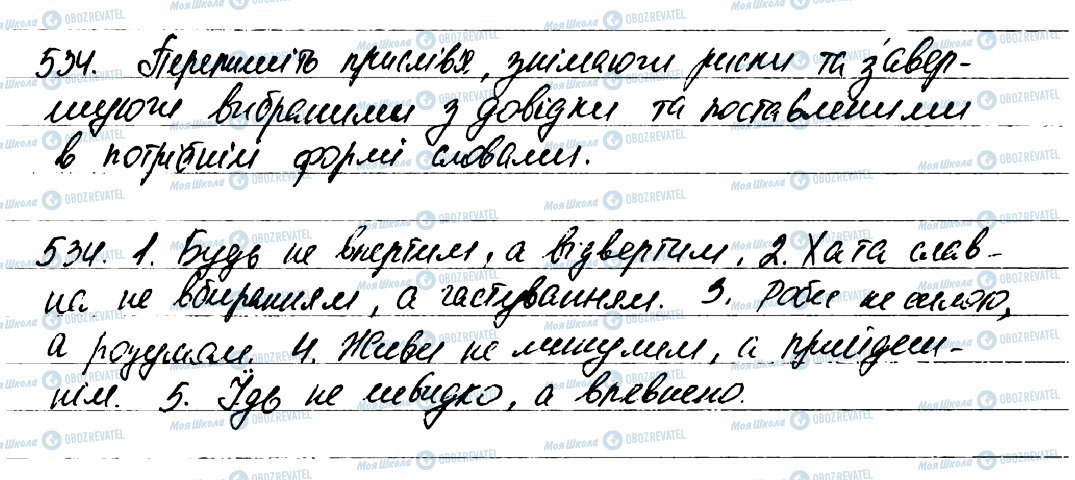 534. Перепишіть прислівя, знімаючи риски та завер-
шуючи вибраними з довідки та поставленими
в потрібній формі словами.
534. 1. Будь не впертим, а відвертим. 2. Хата слав-
на не вбиранням, а частуванням. 3. Роби не силою,
а розумом. 4. Живи не минулим, а прийдеш-
нім. 5. Їдь не швидко, а впевнено.